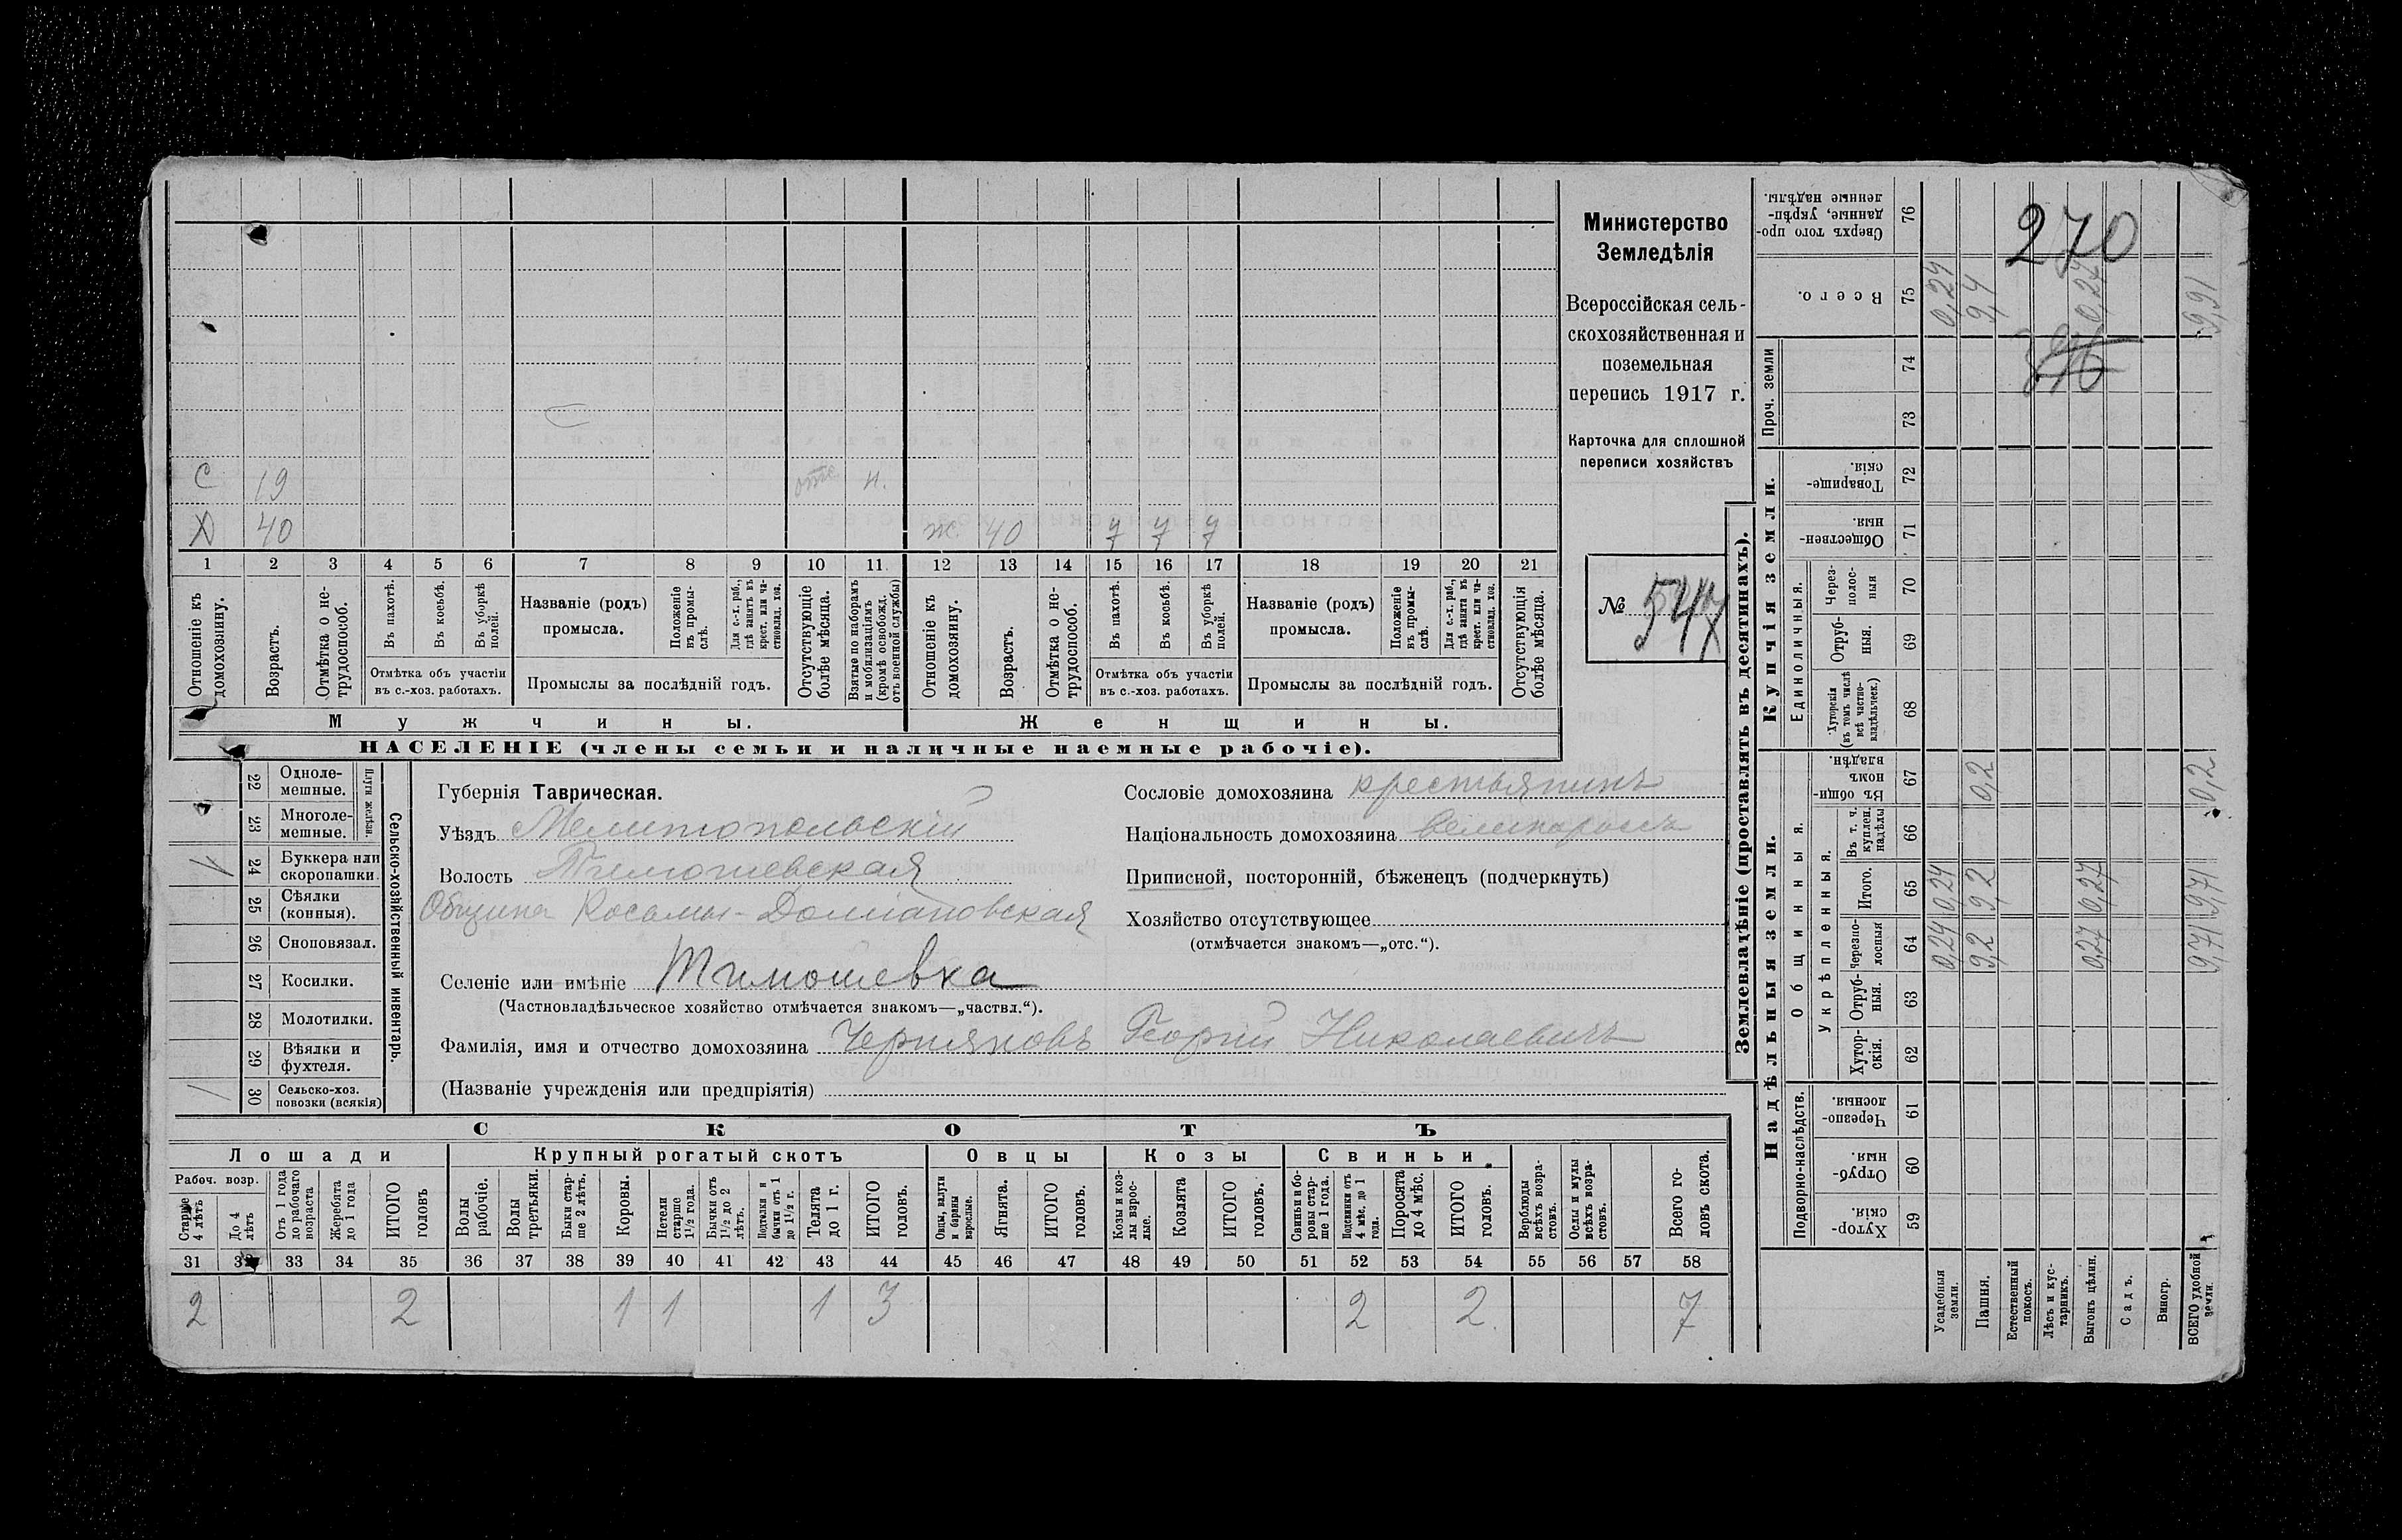 Министерство
Земледѣлія
Всероссійская сель-
скохозяйственная и
поземельная
перепись 1917 г.
Карточка для сплошной
переписи хозяйствъ
№ 547
С 19 отс н.
Х 40 ж. 40 7 7 7
1 2 3 4 5 6 7 8 9 10 11 12 13 14 15 16 17 18 19 20 21
Отношеніе къ домохозяину.
Возрастъ.
Отмѣтка о не-трудоспособ.
Въ пахотѣ.
Въ косьбѣ.
Въ уборкѣ полей.
Отмѣтка объ участіи
въ с.-хоз. работахъ.
Названіе (родъ)
промысла.
Положеніе въ промы-слѣ.
Для с.-х. раб., гдѣ занятъ въ крест. или ча-стновлад. хоз.
Промыслы за послѣдній годъ.
Отсутствующіе болѣе мѣсяца.
Взятые по наборамъ и мобилизаціямъ (кромѣ освобожд. отъ военной службы)
Отношеніе къ домохозяину.
Возрастъ.
Отмѣтка о не-трудоспособ.
Въ пахотѣ.
Въ косьбѣ.
Въ уборкѣ полей.
Отмѣтка объ участіи
въ с.-хоз. работахъ.
Названіе (родъ)
промысла.
Положеніе въ промы-слѣ.
Для с.-х. раб., гдѣ занята въ крест. или ча-стновлад. хоз.
Промыслы за послѣдній годъ.
Отсутствующія болѣе мѣсяца.
Мужчины. Женщины.
НАСЕЛЕНІЕ (члены семьи и наличные наемные рабочіе).
22 Одноле-мешные.
23 Многоле-мешные.
Плуги желѣзн.
24 Буккера или скоропашки 1
25 Сѣялки (конныя).
26 Сноповязал.
27 Косилки.
28 Молотилки.
29 Вѣялки и фухтеля.
30 Сельско-хоз. повозки (всякія) 1
Сельско-хозяйственный инвентарь.
Губернія Таврическая.
Уѣздъ Мелитопольскій
Волость Тимошевская
Община Косьмы-Даміановская
Селеніе или имѣніе Тимошевка
(Частновладѣльческое хозяйство отмѣчается знакомъ—„частвл.“).
Фамилія, имя и отчество домохозяина Черняковъ Георгій Николаевичъ
(Названіе учрежденія или предпріятія)
Сословіе домохозяина крестьянинъ
Національность домохозяина великороссъ
Приписной, посторонній, бѣженецъ (подчеркнуть)
Хозяйство отсутствующее
(отмѣчается знакомъ—„отс.“).
СКОТЪ
Лошади Крупный рогатый скотъ Овцы Козы Свиньи
Рабоч. возр.
Старше 4 лѣтъ
До 4 лѣтъ
Отъ 1 года до рабочаго возраста
Жеребята до 1 года
ИТОГО головъ
Волы рабочіе.
Волы третьяки.
Быки стар-ше 2 лѣтъ.
Коровы.
Нетели старше 1½ года.
Бычки отъ 1½ до 2 лѣтъ.
Подтелки и бычки отъ 1 до 1½ г.
Телята до 1 г.
ИТОГО головъ.
Овцы, валухи и бараны взрослые.
Ягнята.
ИТОГО головъ.
Козы и коз-лы взрос-лые.
Козлята
ИТОГО головъ.
Свиньи и бо-ровы стар-ше 1 года.
Подсвинки отъ 4 мѣс. до 1 года.
Поросята до 4 мѣс.
ИТОГО головъ.
Верблюды всѣхъ возра-стовъ.
Ослы и мулы всѣхъ возра-стовъ.
Всего го-ловъ скота.
31 32 33 34 35 36 37 38 39 40 41 42 43 44 45 46 47 48 49 50 51 52 53 54 55 56 57 58
2 2 1 1 1 3 2 2 7
Землевладѣніе (проставлять въ десятинахъ).
Надѣльныя земли.
Купчія земли.
Проч. земли
Подворно-наслѣдств.
Общинныя.
Укрѣпленныя.
Единоличныя.
Хутор-скія. 59
Отруб-ныя. 60
Черезпо-лосныя. 61
Хутор-скія. 62
Отруб-ныя. 63
Черезпо-лосныя 64 0,24 9,2 0,27 9,71
Итого. 65 0,24 9,2 0,27 9,71
Въ т. ч. куплен. надѣлы 66
Въ общи-номъ владѣн. 67 0,2 0,2
Хуторскія (въ томъ числѣ всѣ частно-владѣльческ.) 68
Отруб-ныя. 69
Через-полос-ныя 70
Обществен-ныя. 71
Товарище-скія. 72
73
74
Всего. 75 0,24 9,4 0,27 9,91
Сверхъ того про-данные, укрѣп-ленные надѣлы. 76
270
Усадебныя земли.
Пашня.
Естественный покосъ.
Лѣсъ и кус-тарникъ.
Выгонъ цѣлин.
Садъ.
Виногр.
ВСЕГО удобной земли.